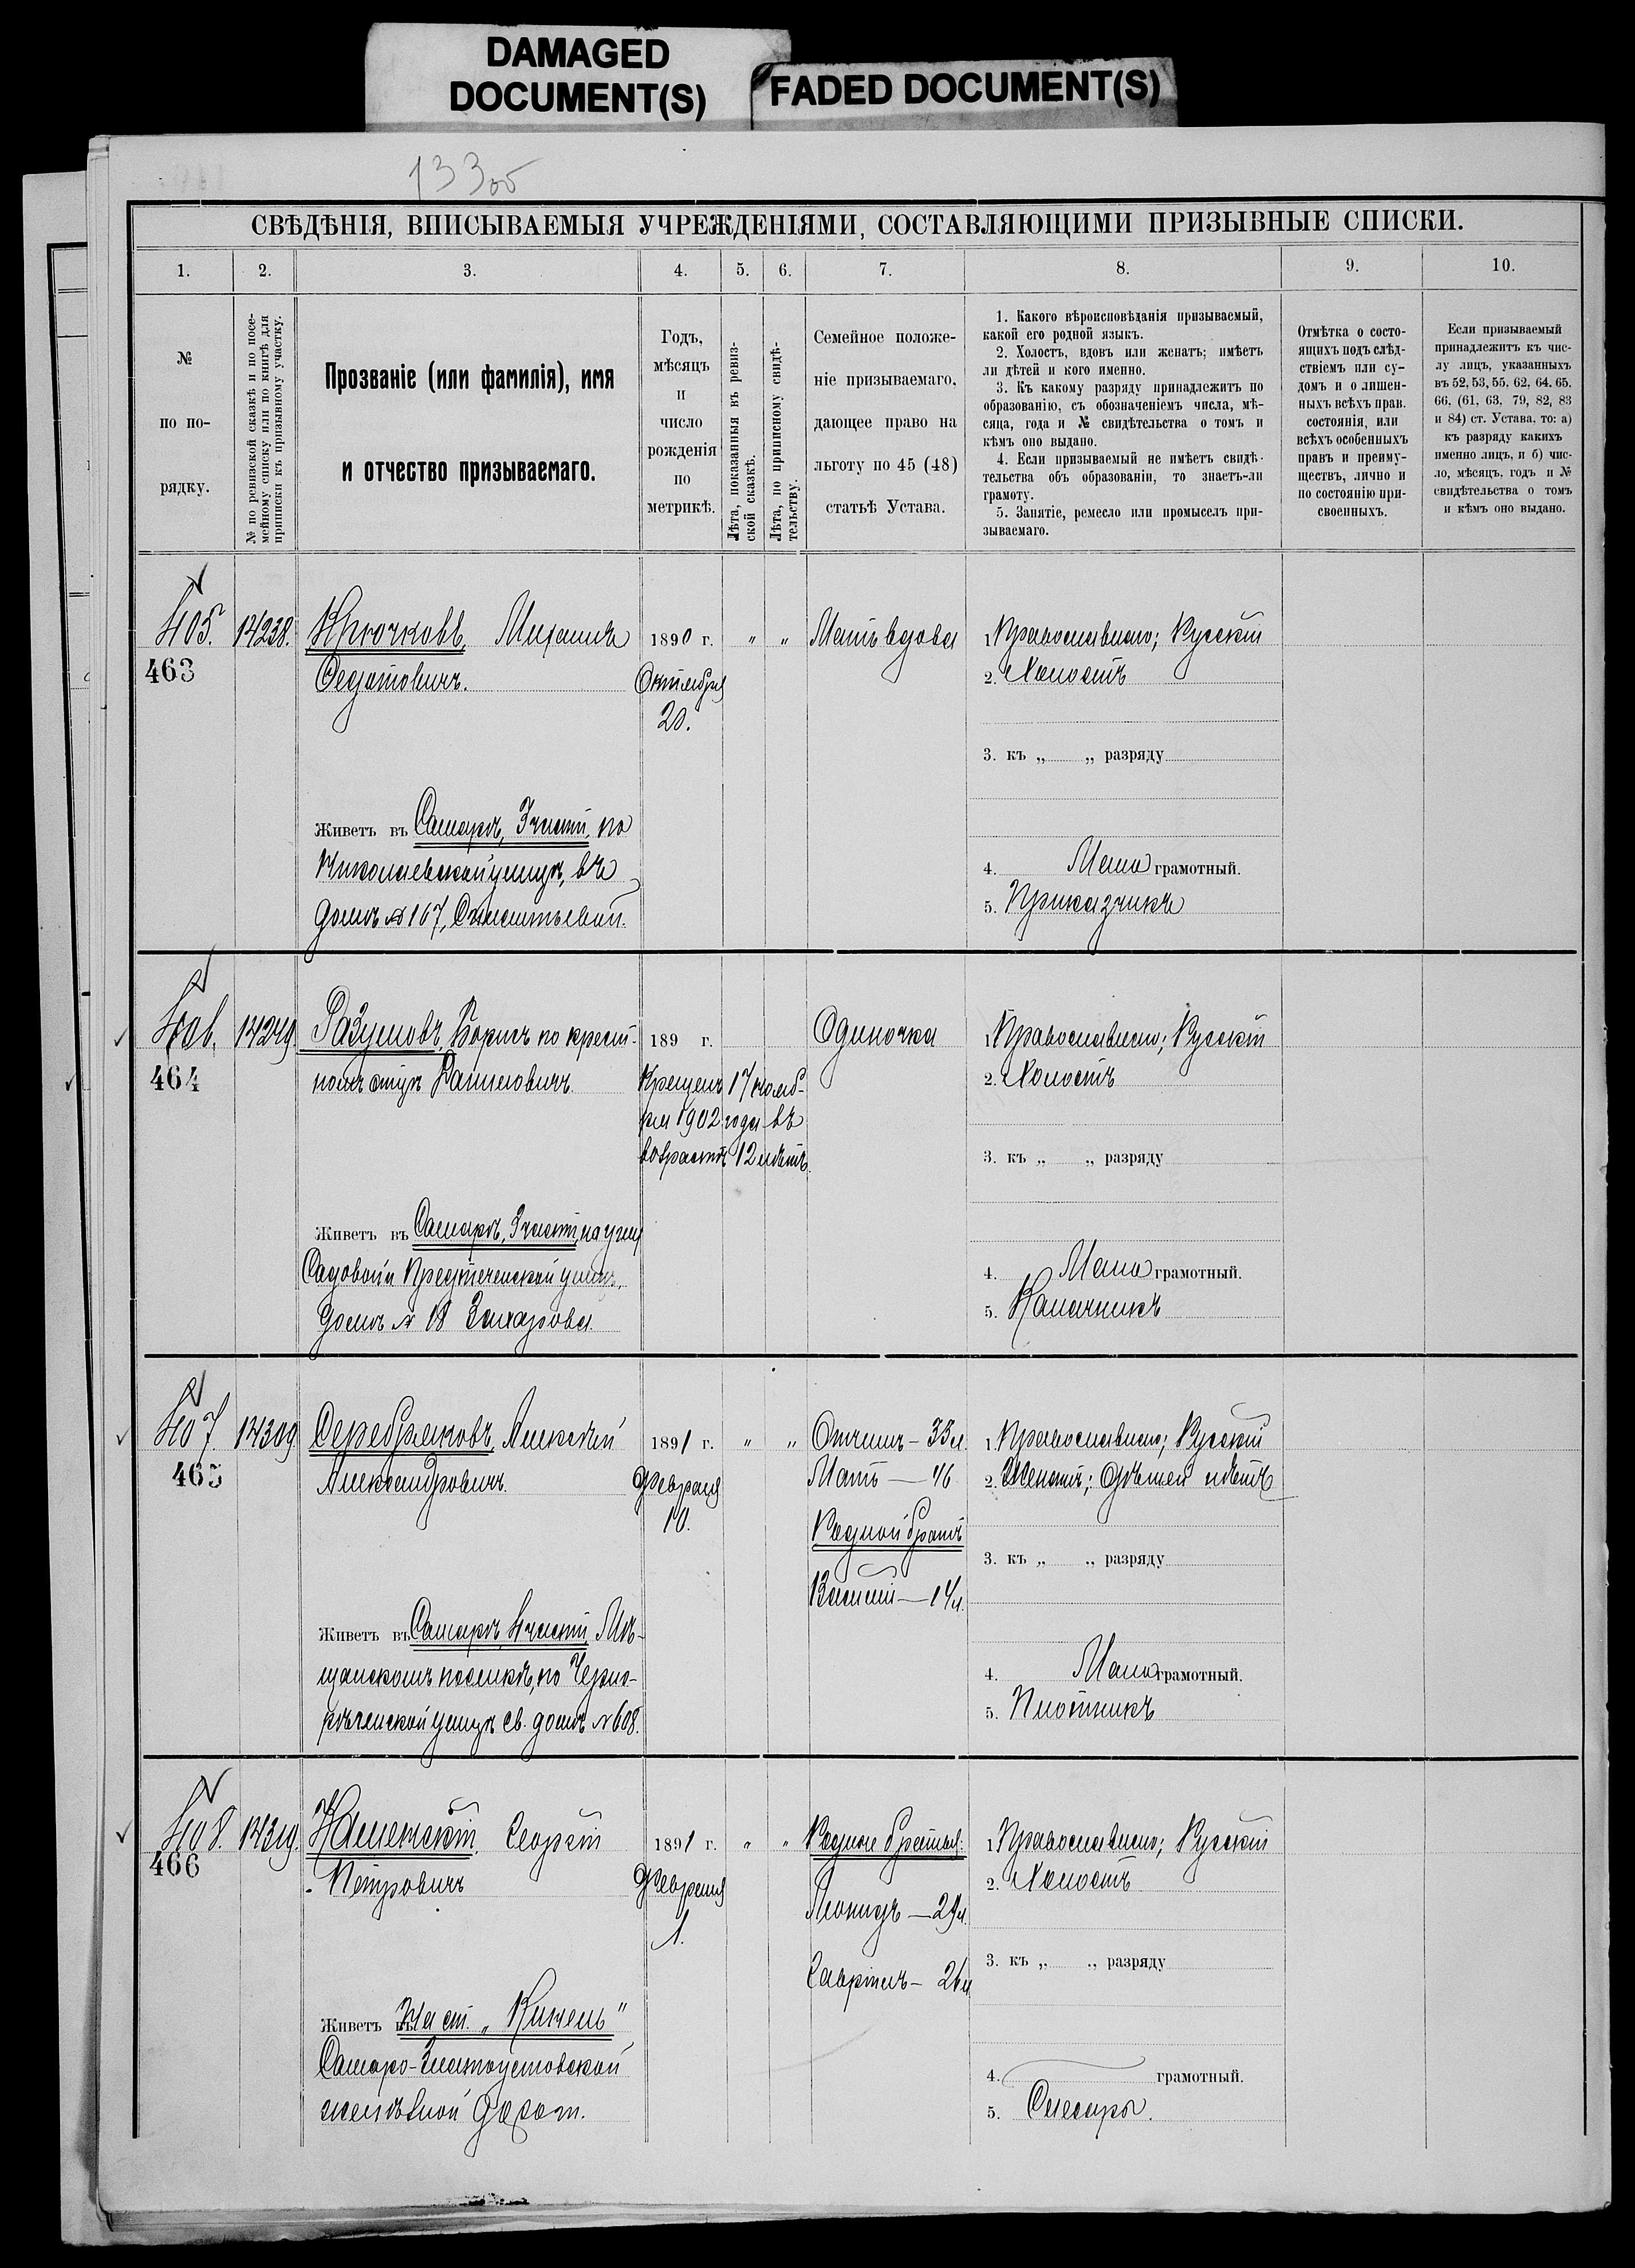 DAMAGED
DOCUMENT(S)
FADED DOCUMENT(S)
133 об
СВѢДѢНІЯ, ВПИСЫВАЕМЫЯ УЧРЕЖДЕНІЯМИ, СОСТАВЛЯЮЩИМИ ПРИЗЫВНЫЕ СПИСКИ.
1.
2.
3.
4.
5.
6.
7.
8.
9.
10.
№
по по-
рядку.
№ по ревизской сказкѣ и по посе-
мейному списку или по книгѣ для
приписки къ призывному участку.
Прозваніе (или фамилія), имя
и отчество призываемаго.
Годъ,
мѣсяцъ
и
число
рожденія
по
метрикѣ.
Лѣта, показанныя въ ревиз-
ской сказкѣ.
Лѣта, по приписному свидѣ-
тельству.
Семейное положе-
ніе призываемаго,
дающее право на
льготу по 45 (48)
статьѣ Устава.
1. Какого вѣроисповѣданія призываемый,
какой его родной языкъ.
2. Холостъ, вдовъ или женатъ; имѣетъ
ли дѣтей и кого именно.
3. Къ какому разряду принадлежитъ по
образованію, съ обозначеніемъ числа, мѣ-
сяца, года и № свидѣтельства о томъ и
кѣмъ оно выдано.
4. Если призываемый не имѣетъ свидѣ-
тельства объ образованіи, то знаетъ-ли
грамоту.
5. Занятіе, ремесло или промыселъ при-
зываемаго.
Отмѣтка о состо-
ящихъ подъ слѣд-
ствіемъ или су-
домъ и о лишен-
ныхъ всѣхъ прав.
состоянія, или
всѣхъ особенныхъ
правъ и преиму-
ществъ, лично и
по состоянію при-
своенныхъ.
Если призываемый
принадлежитъ къ чис-
лу лицъ, указанныхъ
въ 52, 53, 55, 62, 64, 65,
66, (61, 63, 79, 82, 83
и 84) ст. Устава, то: а)
къ разряду какихъ
именно лицъ, и б) чис-
ло, мѣсяцъ, годъ и №
свидѣтельства о томъ
и кѣмъ оно выдано.
405. 14238. Крючковъ, Михаилъ 1890 г. „ „ Мать вдова 1 Православнаго; Русскій
463 Федотовичъ. Октября 2. Холостъ
20.
3. къ „ „ разряду
Живетъ въ Самарѣ, 3 части, по
Николаевской улицѣ, въ 4. Мало грамотный.
домѣ № 167, 5. Приказчикъ
406. 14249. Разумовъ, Борисъ по крест- 189 г. Одиночка 1 Православнаго; Русскій
464 ному отцу Даниловичъ. Крещенъ 17 нояб- 2. Холостъ
ря 1902 года въ
возрастѣ 12 лѣтъ. 3. къ „ „ разряду
Живетъ въ Самарѣ, 3 части, на углу
Садовой и Предтеченской улиц., 4. Мало грамотный.
домъ № 18 Захарова. 5. Калачникъ
407. 14309. Серебряковъ, Алексѣй 1891 г. „ „ Отчим – 33 л. 1 Православнаго; Русскій
465 Александровичъ. Февраля Мать – 46 2. Женатъ; дѣтей нѣтъ
10. Родной братъ
3. къ „ „ разряду
Василій – 14 л.
Живетъ въ Самарѣ, 4 части, Мѣ-
щанскомъ поселкѣ, по Черно- 4. Мало грамотный.
рѣченской улицѣ св. домъ № 608. 5. Плотникъ
408. 14319. Каменскій, Георгій 1891 г. „ „ Родные братья: 1 Православнаго; Русскій
466 Петровичъ Февраля 2. Холостъ
1. Леонидъ – 29 л.
Гавріилъ – 26 л. 3. къ „ „ разряду
Живетъ въ На ст. „Кинель"
Самаро-Златоустовской 4. грамотный.
желѣзной дороги. 5. Слесарь.